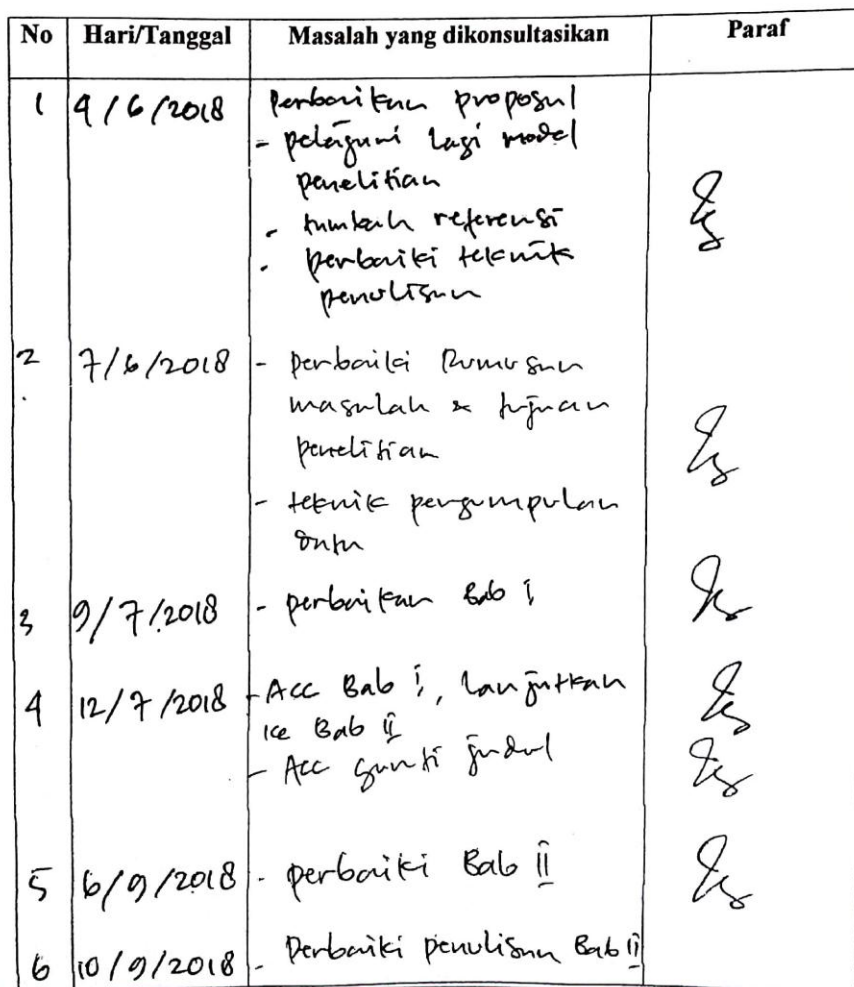 No Hari/Tanggal Masalah yang dikonsultasikan Paraf
1 4/6/2018 Perbaikan proposal
- pelajari lagi model
penelitian
- tambah referensi
- perbaiki teknik
penulisan
2 7/6/2018 - perbaiki Rumusan
.
masalah & tujuan
penelitian
- teknik pengumpulan
data
3 9/7/2018 - perbaikan Bab I
4 12/7/2018 - Acc Bab I, lanjutkan
ke Bab II
- Acc ganti judul
5 6/9/2018 - perbaiki Bab II
6 10/9/2018 - Perbaiki penulisan Bab II